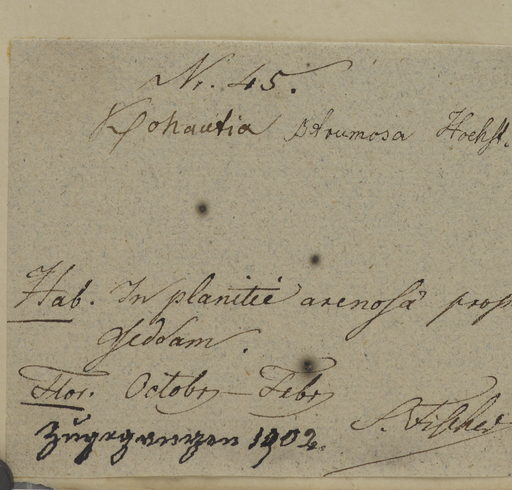 Nr. 45.
Kohautia strumosa Hochst.
Hab. In planitie arenosâ prop
Geddam.
Flor. Octobr – Febr
S. Fischer
Zugegangen 1902.